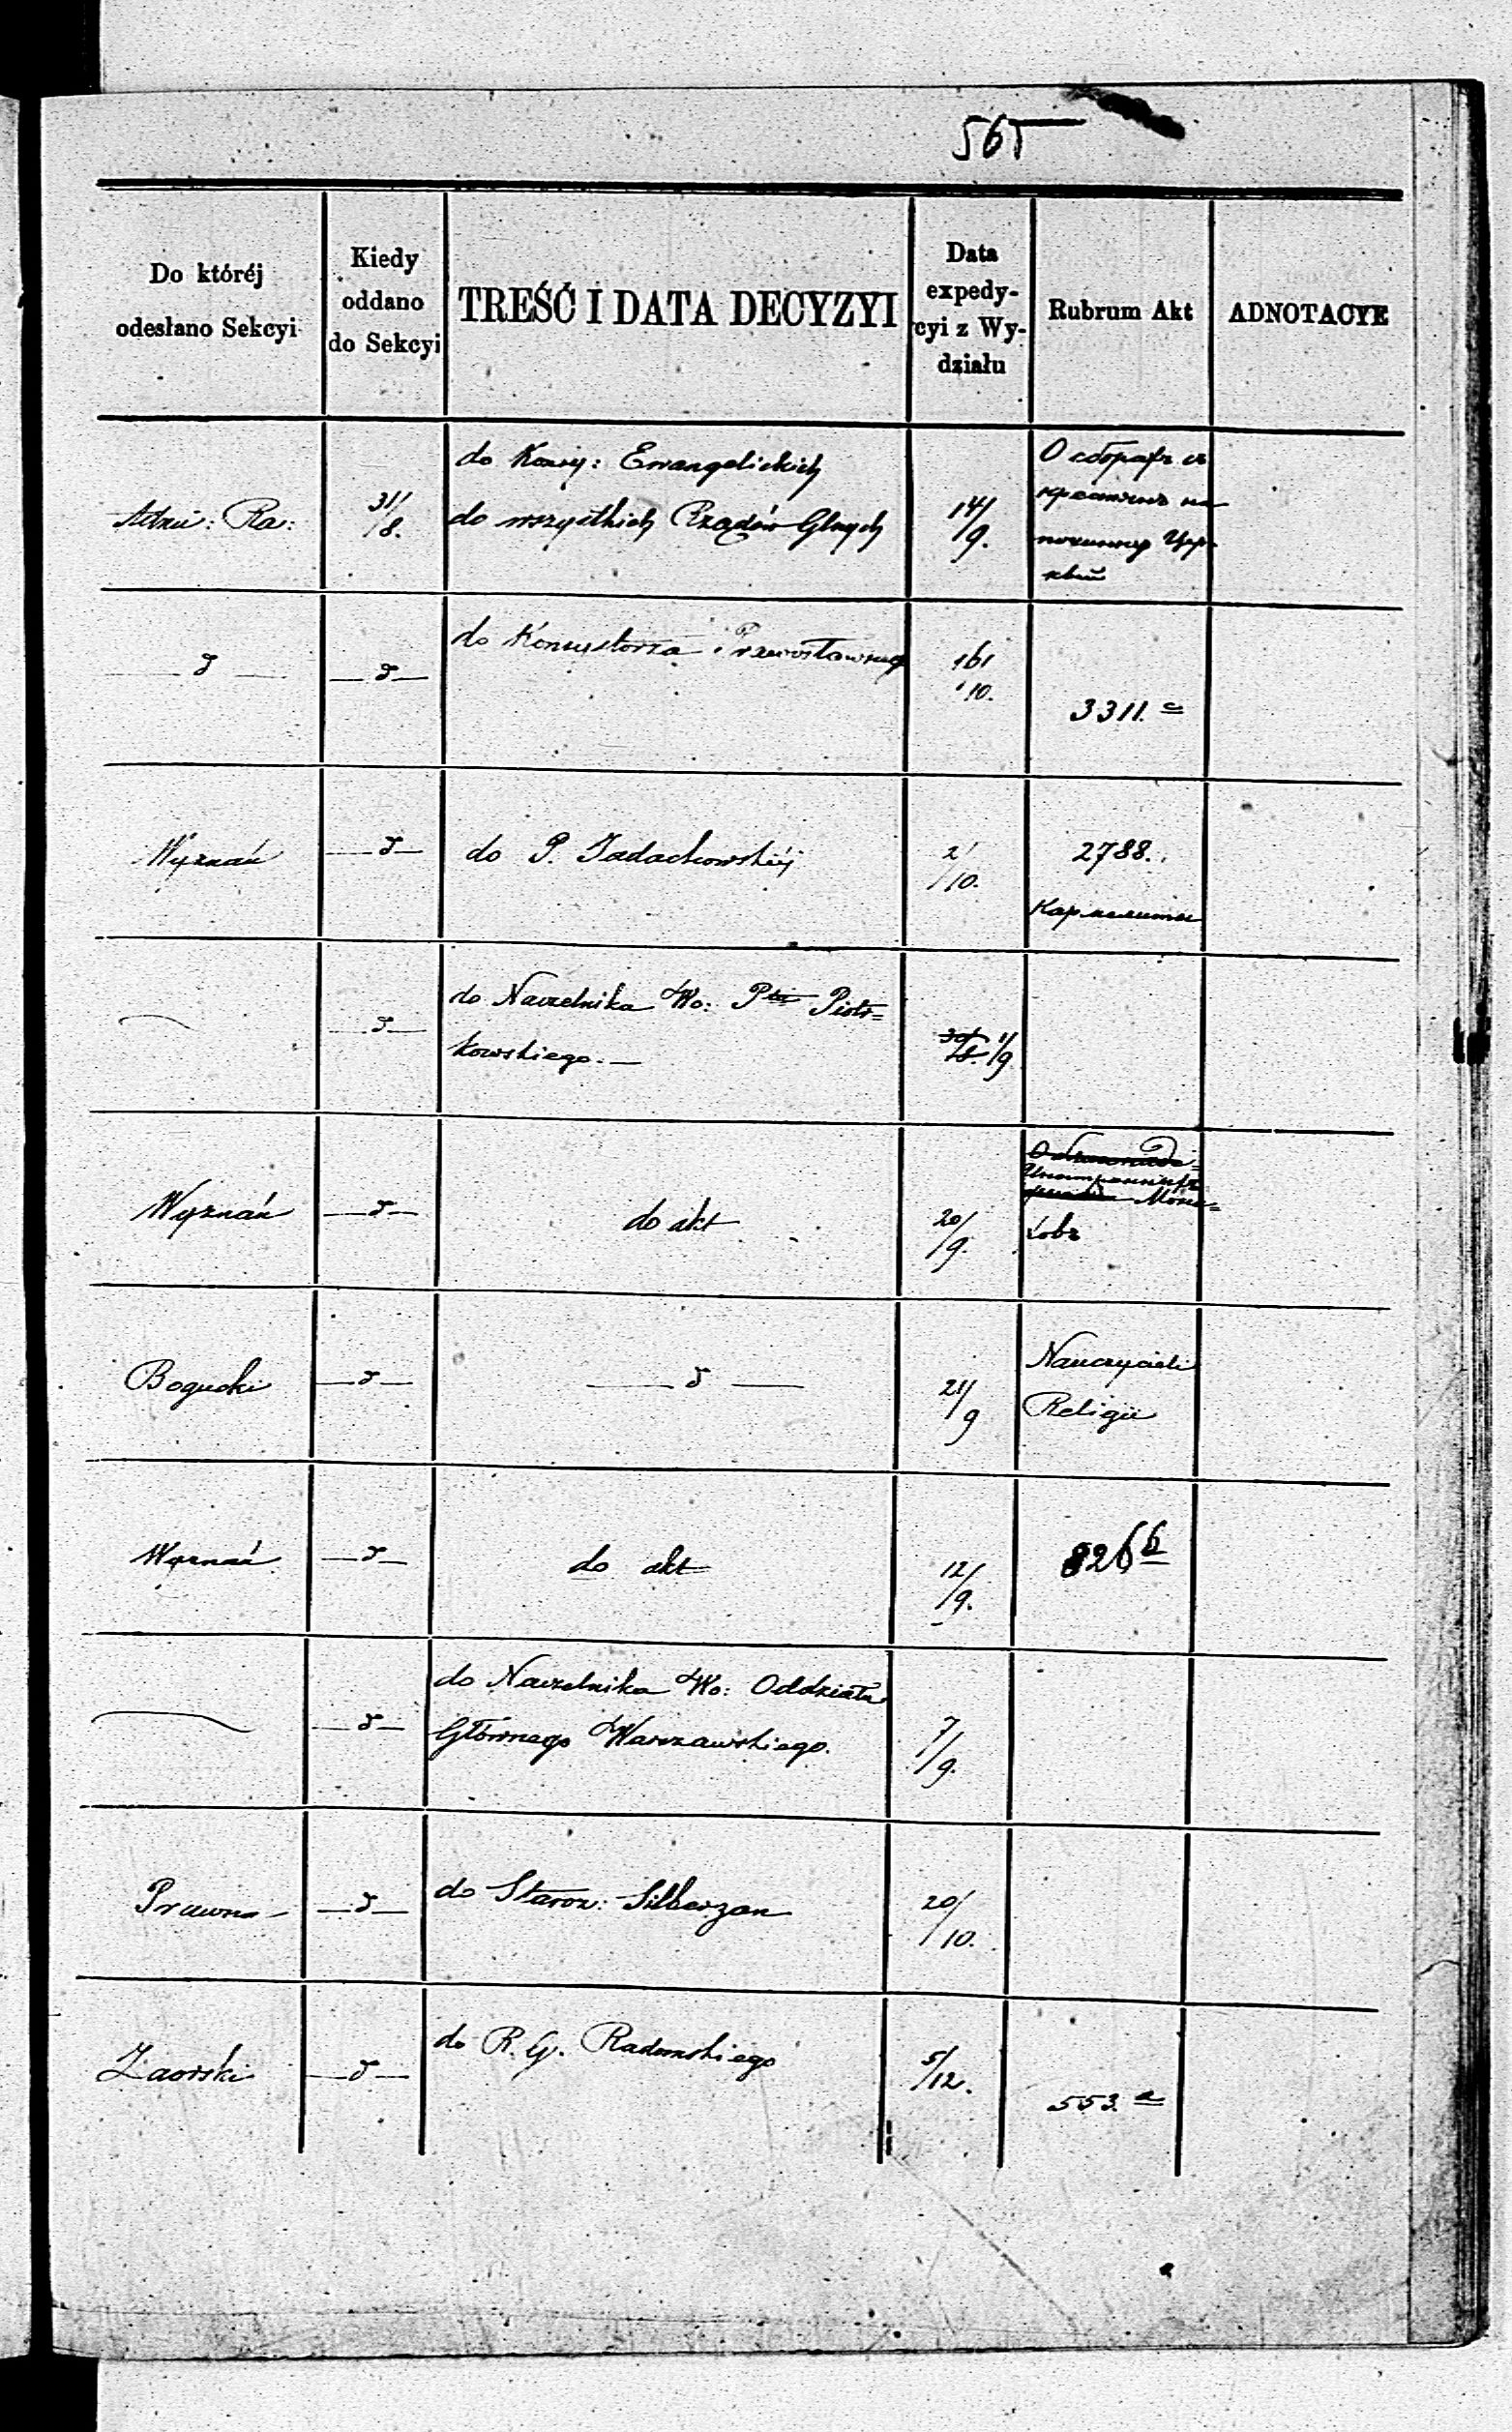 565
Do któréj
odesłano Sekcyi
Kiedy
oddano
do Sekcyi
TREŚĆ I DATA DECYZYI
Data
expedy-
cyi z Wy-
działu
Rubrum Akt
ADNOTACYE
Ra:
31/8.
do Konsy: Ewangelickich
do wszystkich Rządów Glnych
14/9.
О сборахъ съ
на
Цер-
квей
d
d
do Konsystorza Prawosławnego
16/10.
3311. c
Wyznań
d
do P. Jadachowskiéj
2/10.
2788.
Кармелиты
d
do Naczelnika Wo: Ptu Piotr=
kowskiego.
1/9
Wyznań
d
do akt
20/9.
Bogucki
d
d
21/9
Nauczyciele
Religii
Wyznań
d
do akt
12/9.
826 b
d
do Naczelnika Wo: Oddziału
Głównego Warszawskiego.
7/9.
Prawna
d
do Staroz: Silberzan
20/10.
Zaorski
d
do R. G. Radomskiego
5/12.
553. a